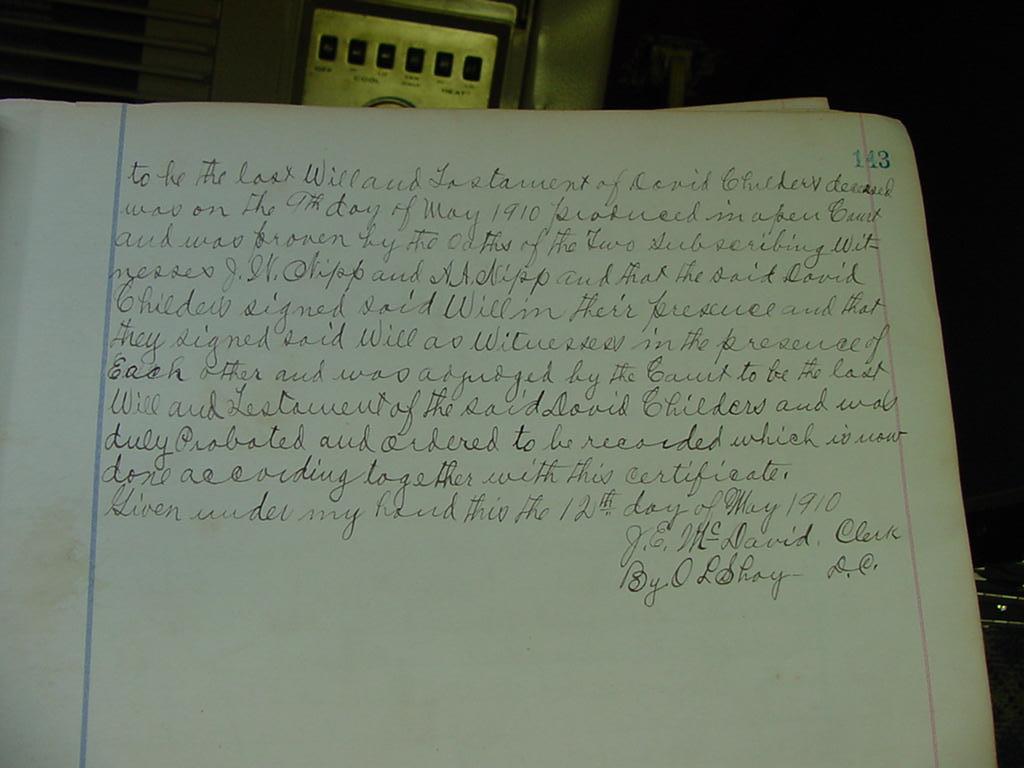 OFF LO COOL HEAT
143
to be the last Will and Testament of David Childers deceased
was on the 9th day of May 1910 produced in open Court
and was proven by the Oaths of the Two subscribing Wit-
nesses J. W. Nipp and A. A. Nipp and that the said David
Childers signed said Will in their presence and that
they signed said Will as Witnesses in the presence of
Each other and was adjudged by the Court to be the last
Will and Testament of the said David Childers and was
duly Probated and ordered to be recorded which is now
done according together with this certificate.
Given under my hand this the 12th day of May 1910
J.E. McDavid. Clerk
By O L Shay D.C.